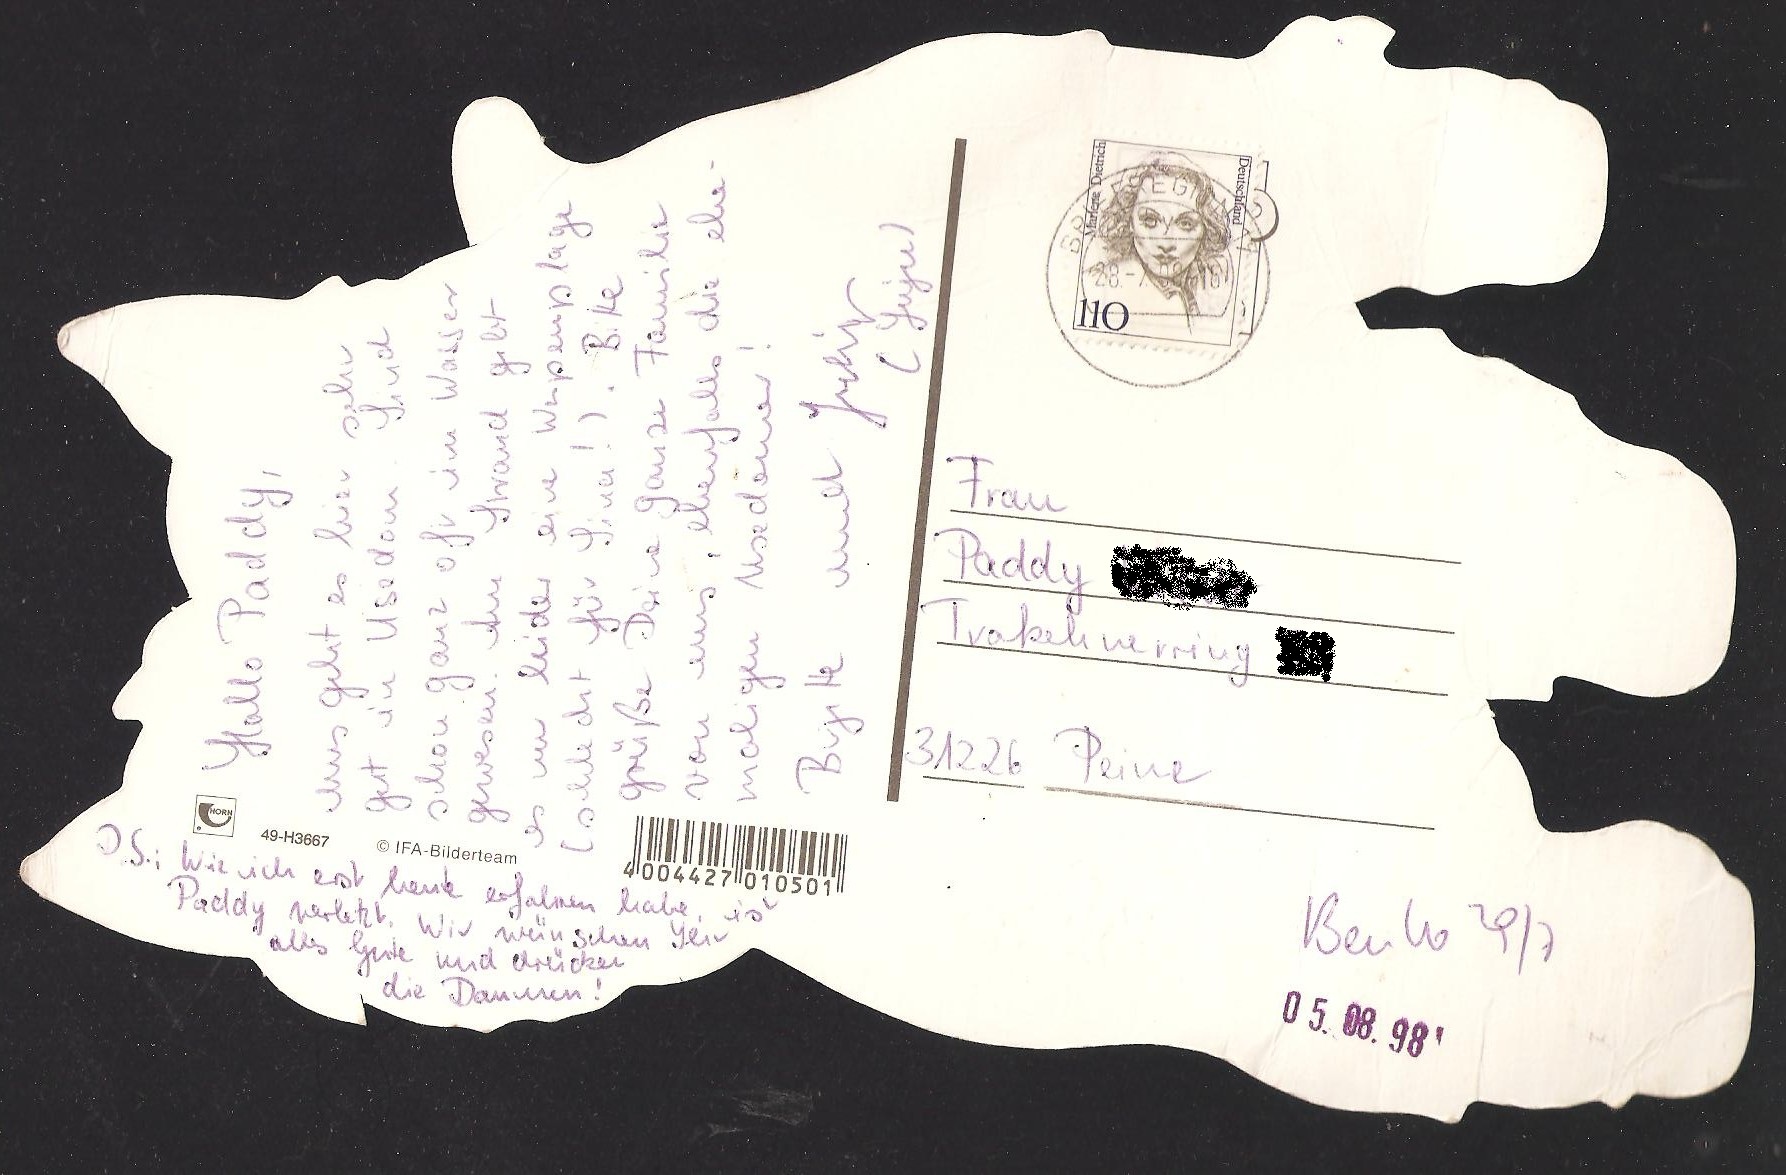 Hallo Paddy,
uns geht es hier sehr
gut in Usedom. Sind
schon ganz oft im Wasser
gewesen. Am Strand gibt
es nur leider eine Wespenplage
(schlecht für Sina!). Bitte
grüße Deine ganze Familie
von uns, ebenfalls die ehe-
maligen Usedomer!
Birgitte und
P.S.: Wie ich erst heute erfahren habe, ist
Paddy verletzt. Wir wünschen Ihr
alles Gute und drücken
die Daumen!
HORN
49-H3667
© IFA-Bilderteam
4 004427 010501
Marlene Dietrich
Deutschland
110
28.-7.
Frau
Paddy
Trakehnerring
31226 Peine
29/7
05.08.98